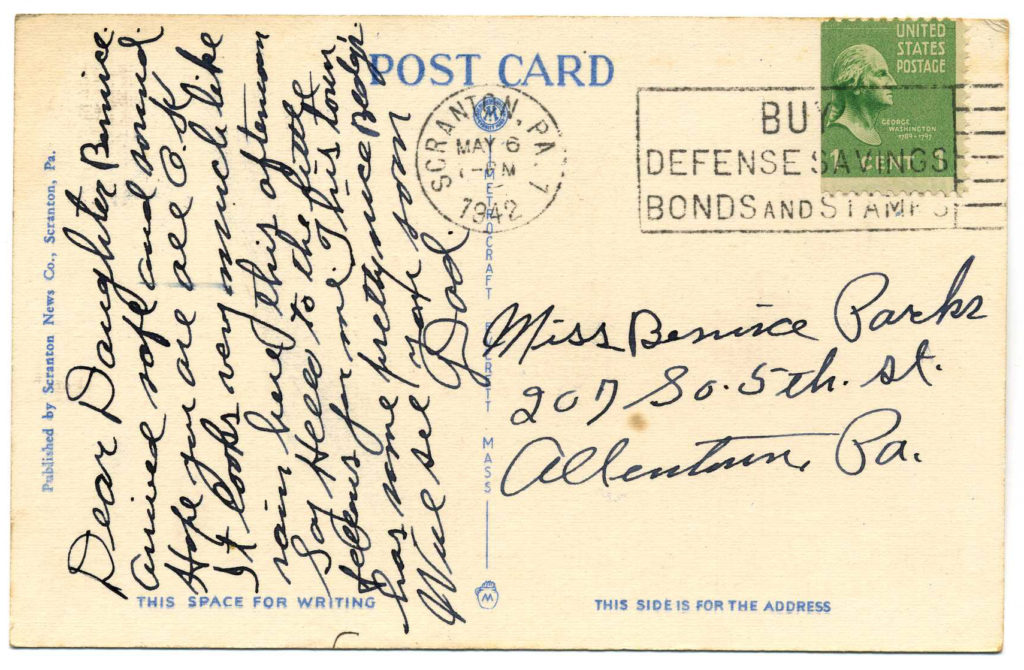 POST CARD
UNITED
STATES
POSTAGE
GEORGE
WASHINGTON
1789-1797
1 CENT
SCRANTON, PA. 7
MAY 6
PM
1942
BUY
DEFENSE SAVINGS
BONDS AND STAMPS
Published by Scranton News Co., Scranton, Pa.
Dear Daughter Bernice.
Arrived safe and sound.
Hope you are all O.K.
It looks very much like
rain here this afternoon
Say Hello to the little
fellows for me. This town
has some pretty nice Bldg's
Will see you soon
Dad.
METROCRAFT EVERETT MASS
M
Miss Bernice Parks
207 So. 5th. St.
Allentown, Pa.
THIS SPACE FOR WRITING
M
THIS SIDE IS FOR THE ADDRESS